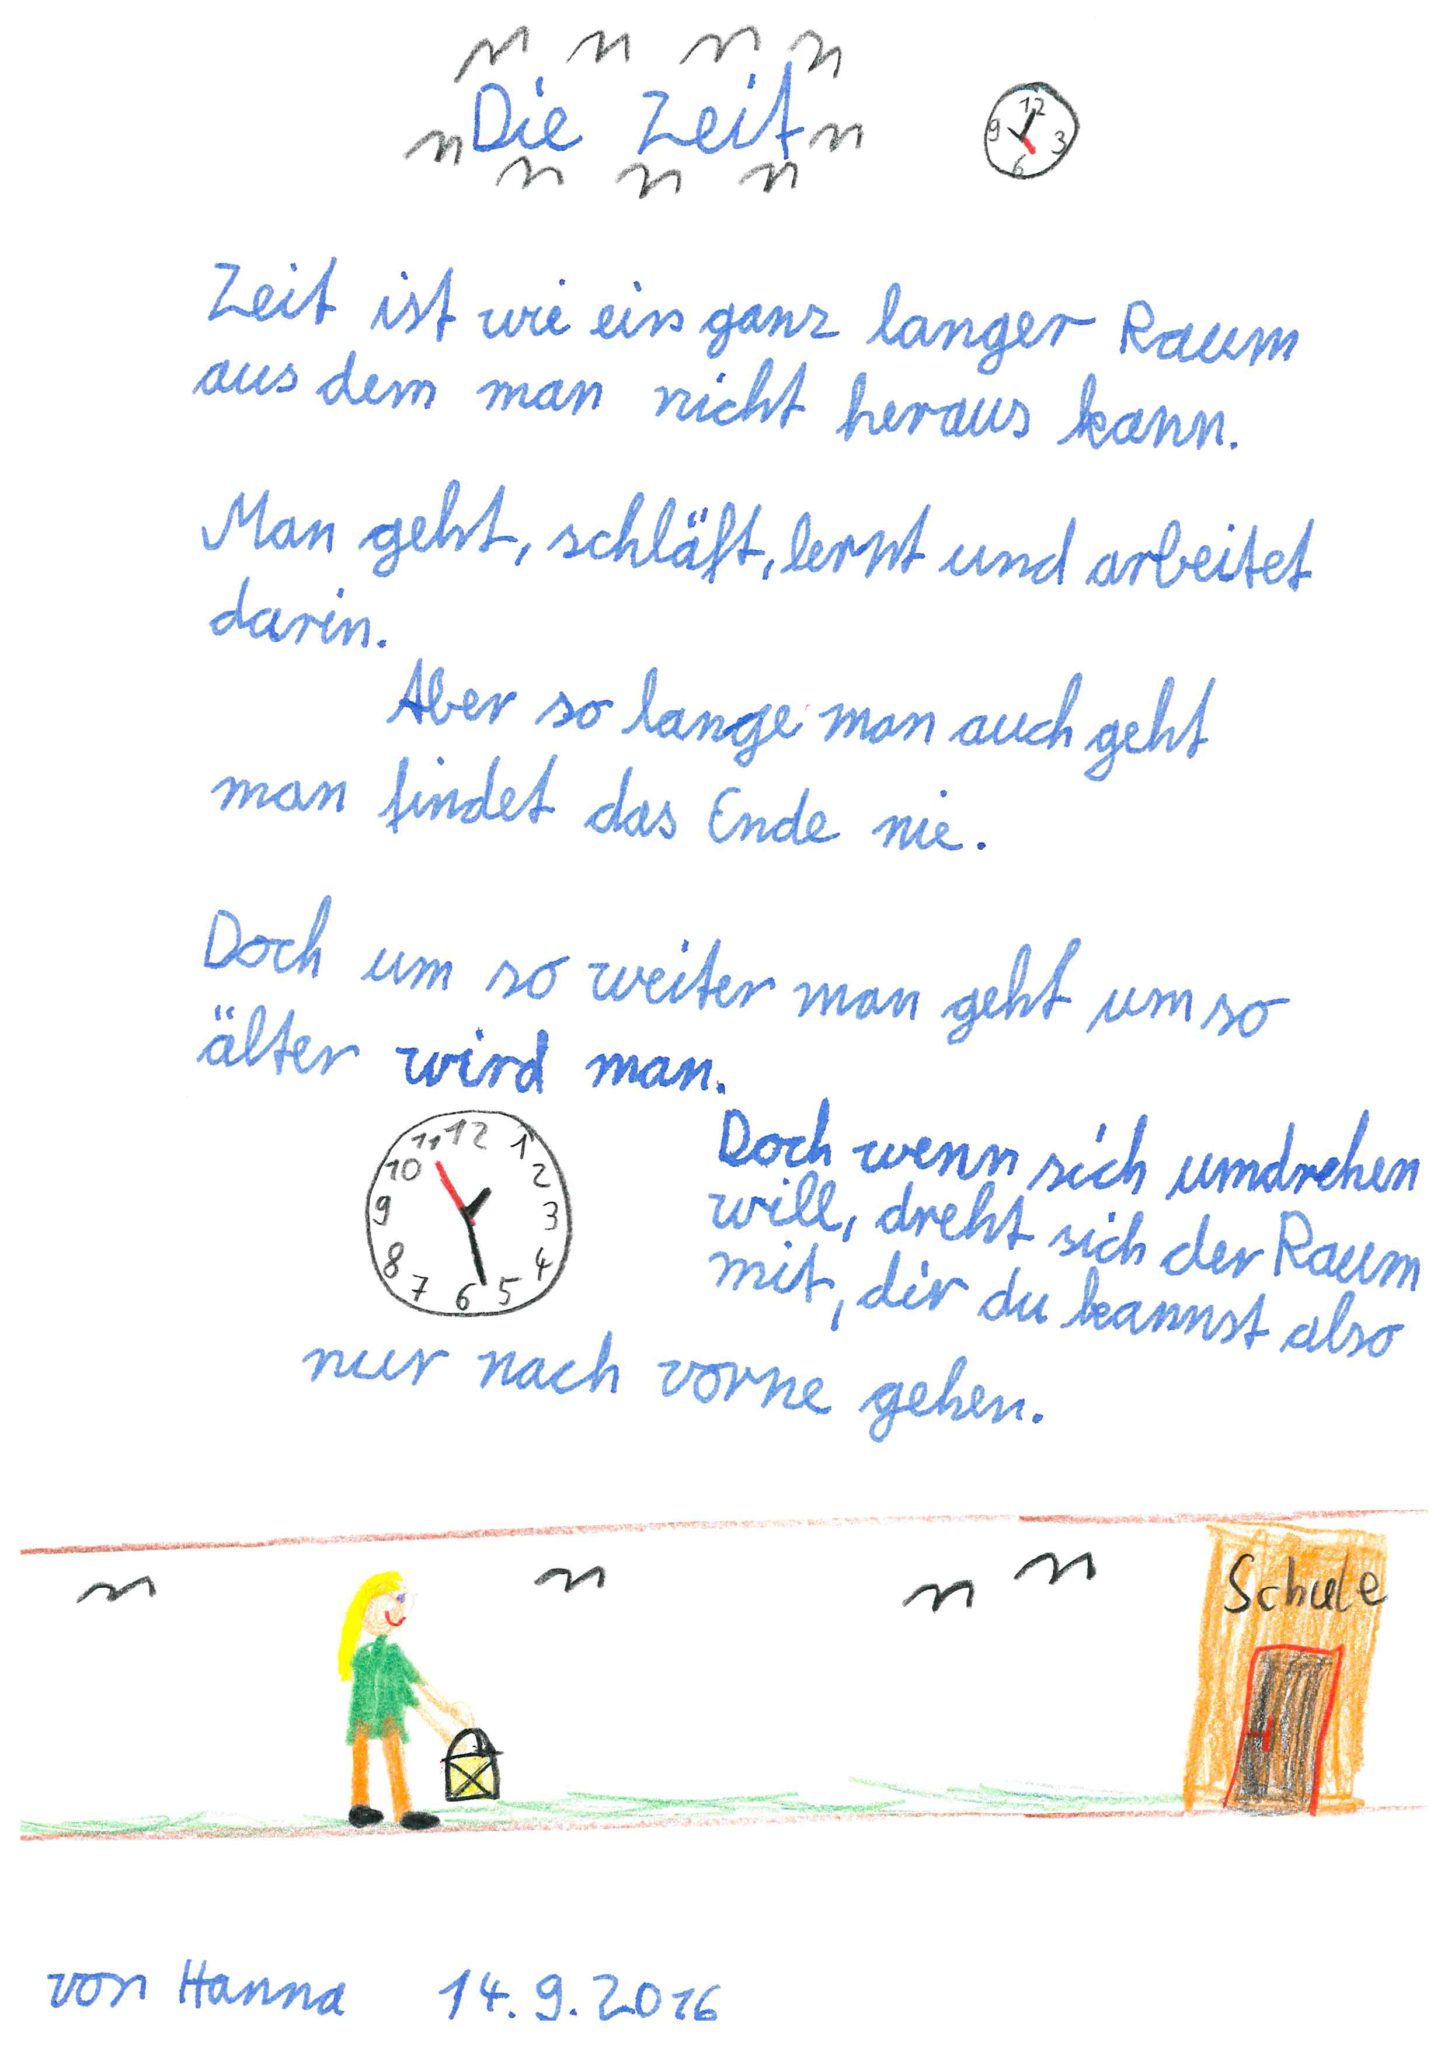 Die Zeit
12
9
3
6
Zeit ist wie ein ganz langer Raum
aus dem man nicht heraus kann.
Man geht, schläft, lernt und arbeitet
darin.
Aber so lange man auch geht
man findet das Ende nie.
Doch um so weiter man geht um so
älter wird man.
11 12 1
10 2
9 3
8 4
7 6 5
Doch wenn sich umdrehen
will, dreht sich der Raum
mit, dir du kannst also
nur nach vorne gehen.
Schule
von Hanna 14.9.2016